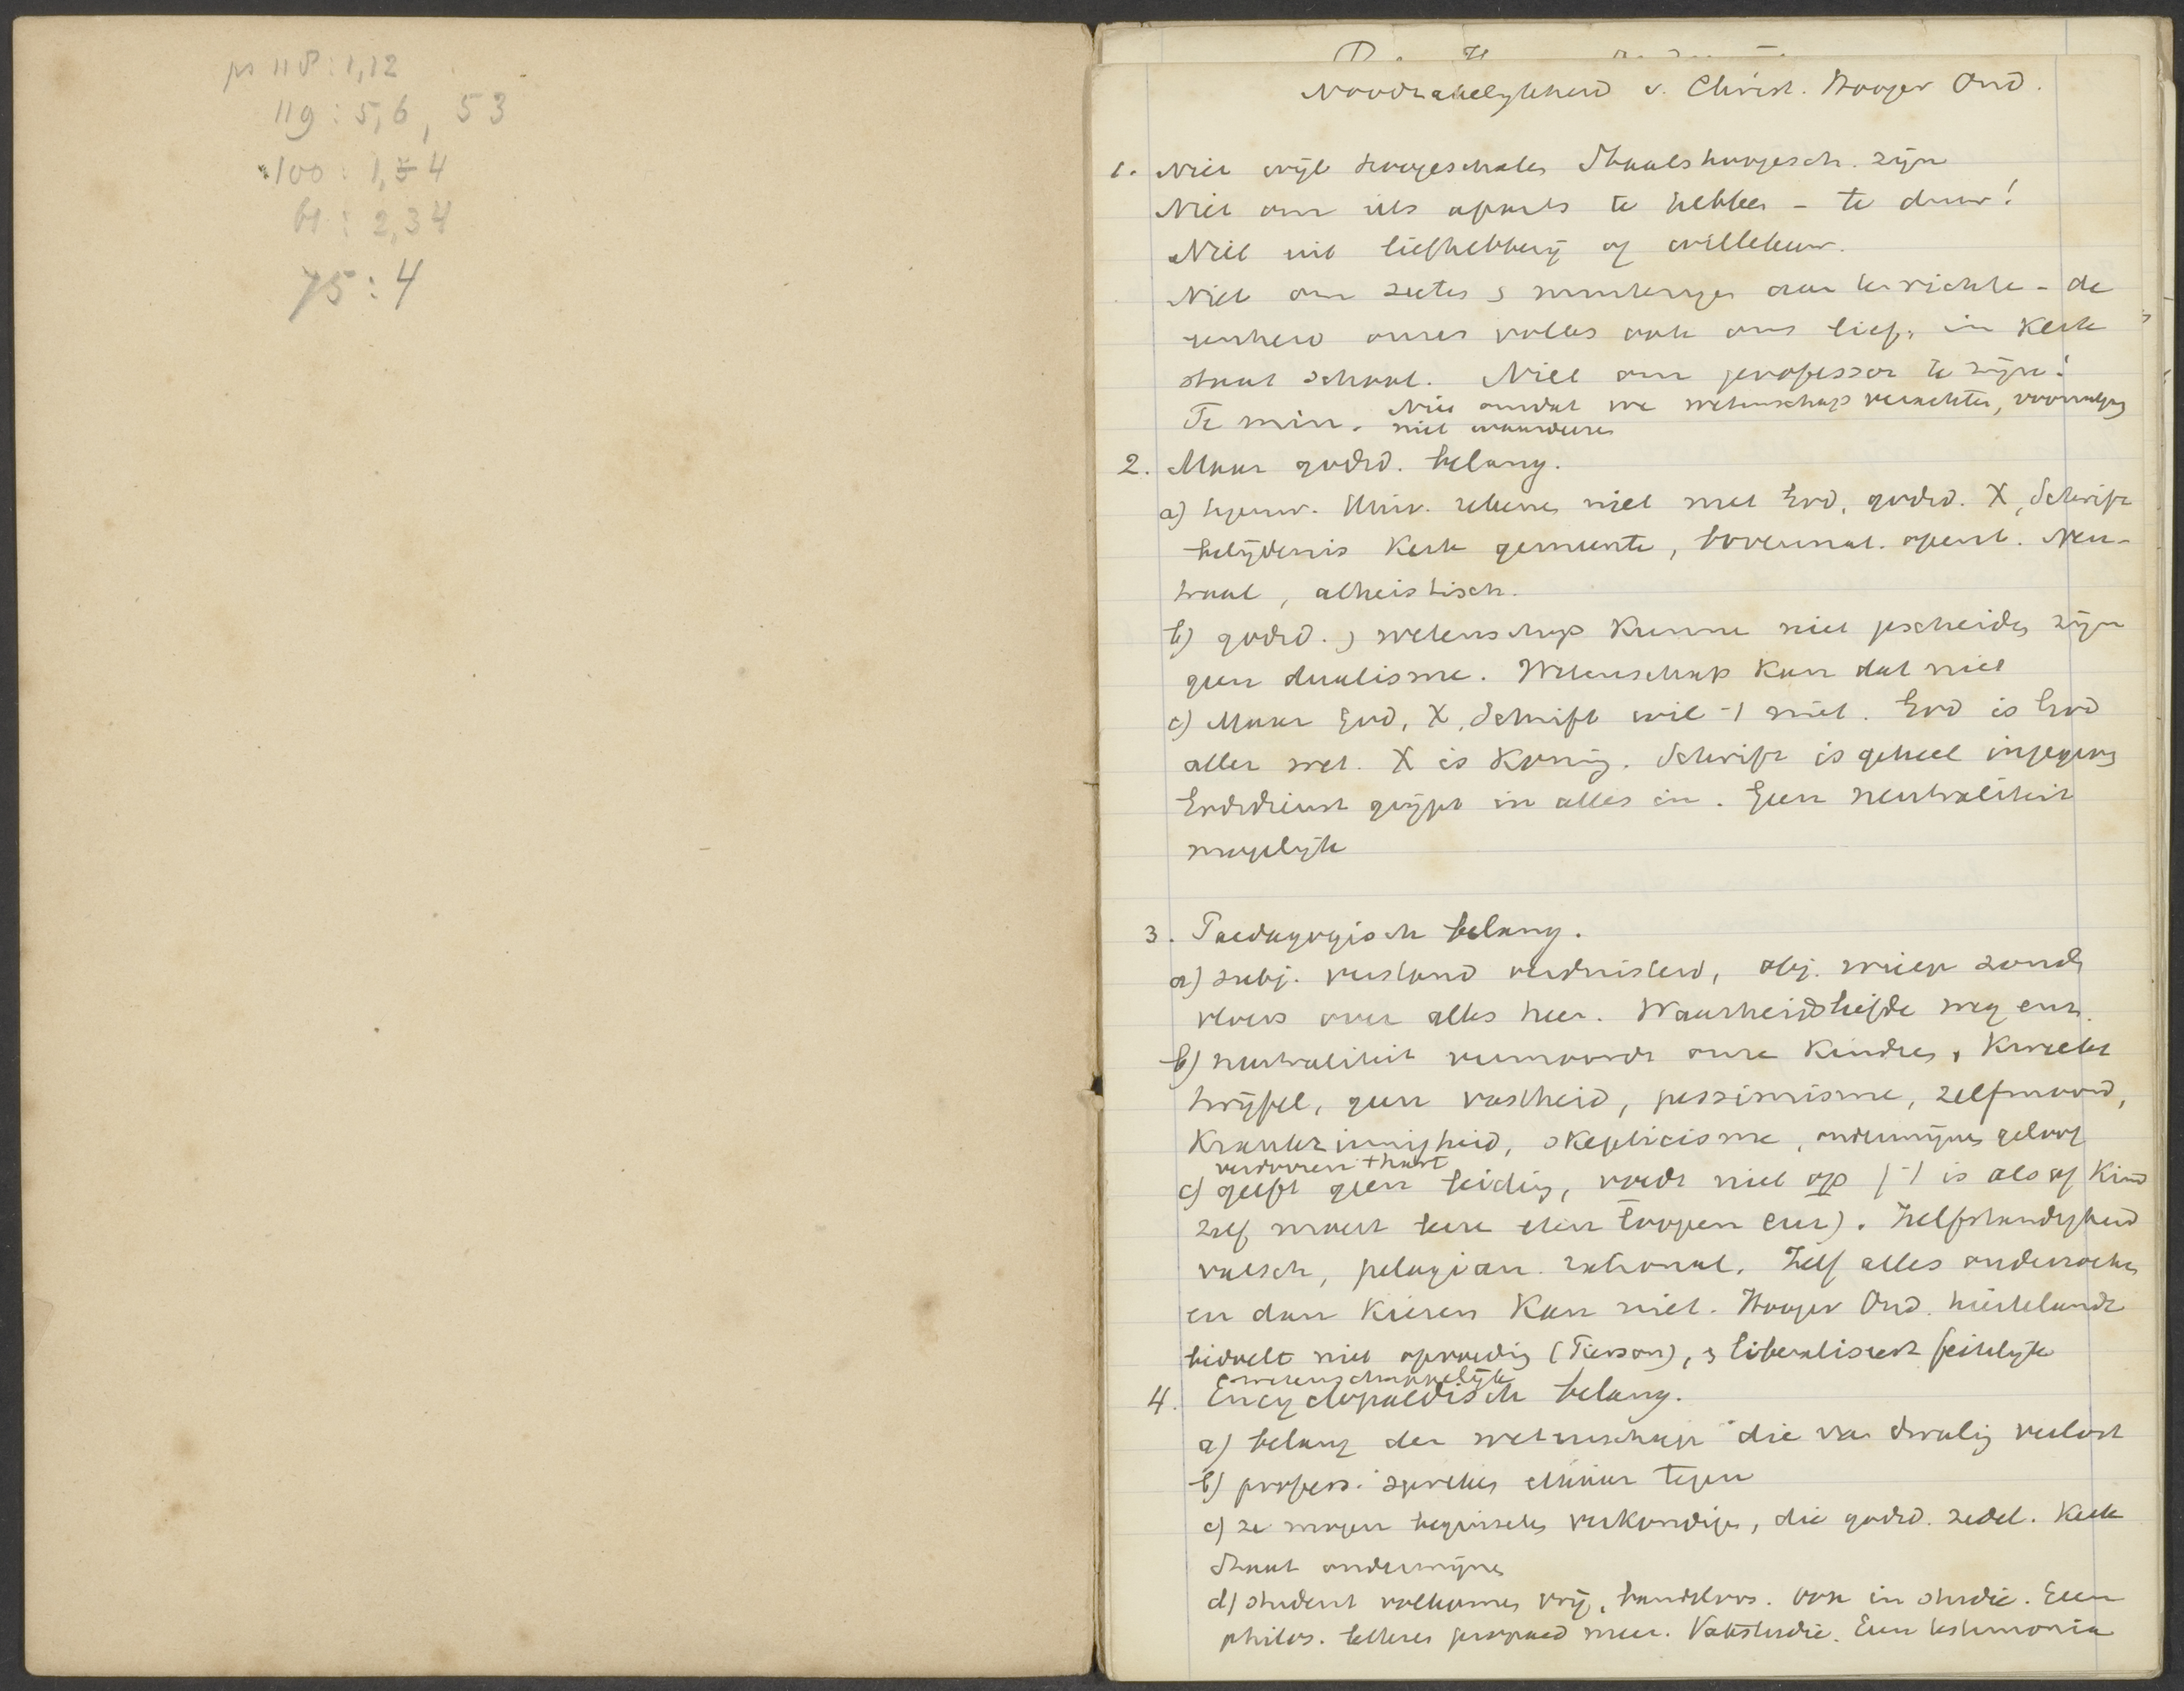 ps 118 : 1,12
119 : 5,6, 53
100 : 1, 4
61 : 2,34
75 : 4
Noodzakelijkheid v. Christ. Hooger Ond.
1. Niet wijl hoogescholen Staatshoogesch. zijn
Niet om iets aparts te hebben - te duur!
Niet uit liefhebberij of willekeur.
Niet om secten & aan te richten - de
eenheid onzes volks ook ons lief, in Kerk
staat school. Niet om professor te zijn!
Te min. Niet omdat we wetenschap verachten,
niet waarderen
2. Maar godsd. belang.
a) tegenw. Univ. rekenen niet met God, godsd. X, Schrift
belijdenis Kerk gemeente, bovennat. openb. Neu-
traal, atheistisch.
b) godsd. & wetenschap kunnen niet gescheiden zijn
geen dualisme. Wetenschap kan dat niet
c) Maar God, X, Schrift wil 't niet. God is God
aller wet. X is Koning. Schrift is geheel ingegeven
Godsdienst grijpt in alles in. Geen neutraliteit
mogelijk
3. Paedagogisch belang.
a) subj. verstand verduisterd, obj. wierp zonde
vloers over alles heen. Waarheidsliefde weg enz.
b) neutraliteit vermoordt onze kinderen, kweekt
twijfel, geen vastheid, pessimisme, zelfmoord,
Krankzinnigheid, skepticisme, ondermijnen geloof
verdorven + hart
c) geeft geen leiding, voedt niet op ('t is alsof Kind
zelf moest leeren eten loopen enz). Zelfstandigheid
valsch, pelagian. rational. Zelf alles onderzoeken
en dan kiezen kan niet. Hooger Ond. hier te lande
bedoelt niet opvoeding (Pierson), & liberaliseert feitelijk
wetenschappelijk
4. Encyclopaedisch belang.
a) belang der wetenschap die van dwaling verlost
b) profess. spreken elkaar tegen
c) ze mogen beginselen verkondigen, die godsd. zedel. Kerk
Staat ondermijnen
d) student volkomen vrij, bandeloos. Ook in studie. Geen
philos. letteren propaed meer. Vakstudie. Geen testimonia